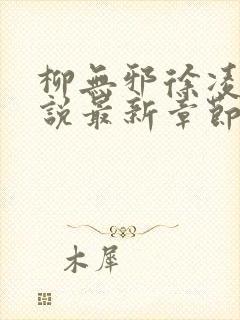 柳無邪徐凌
說最新章節
木犀